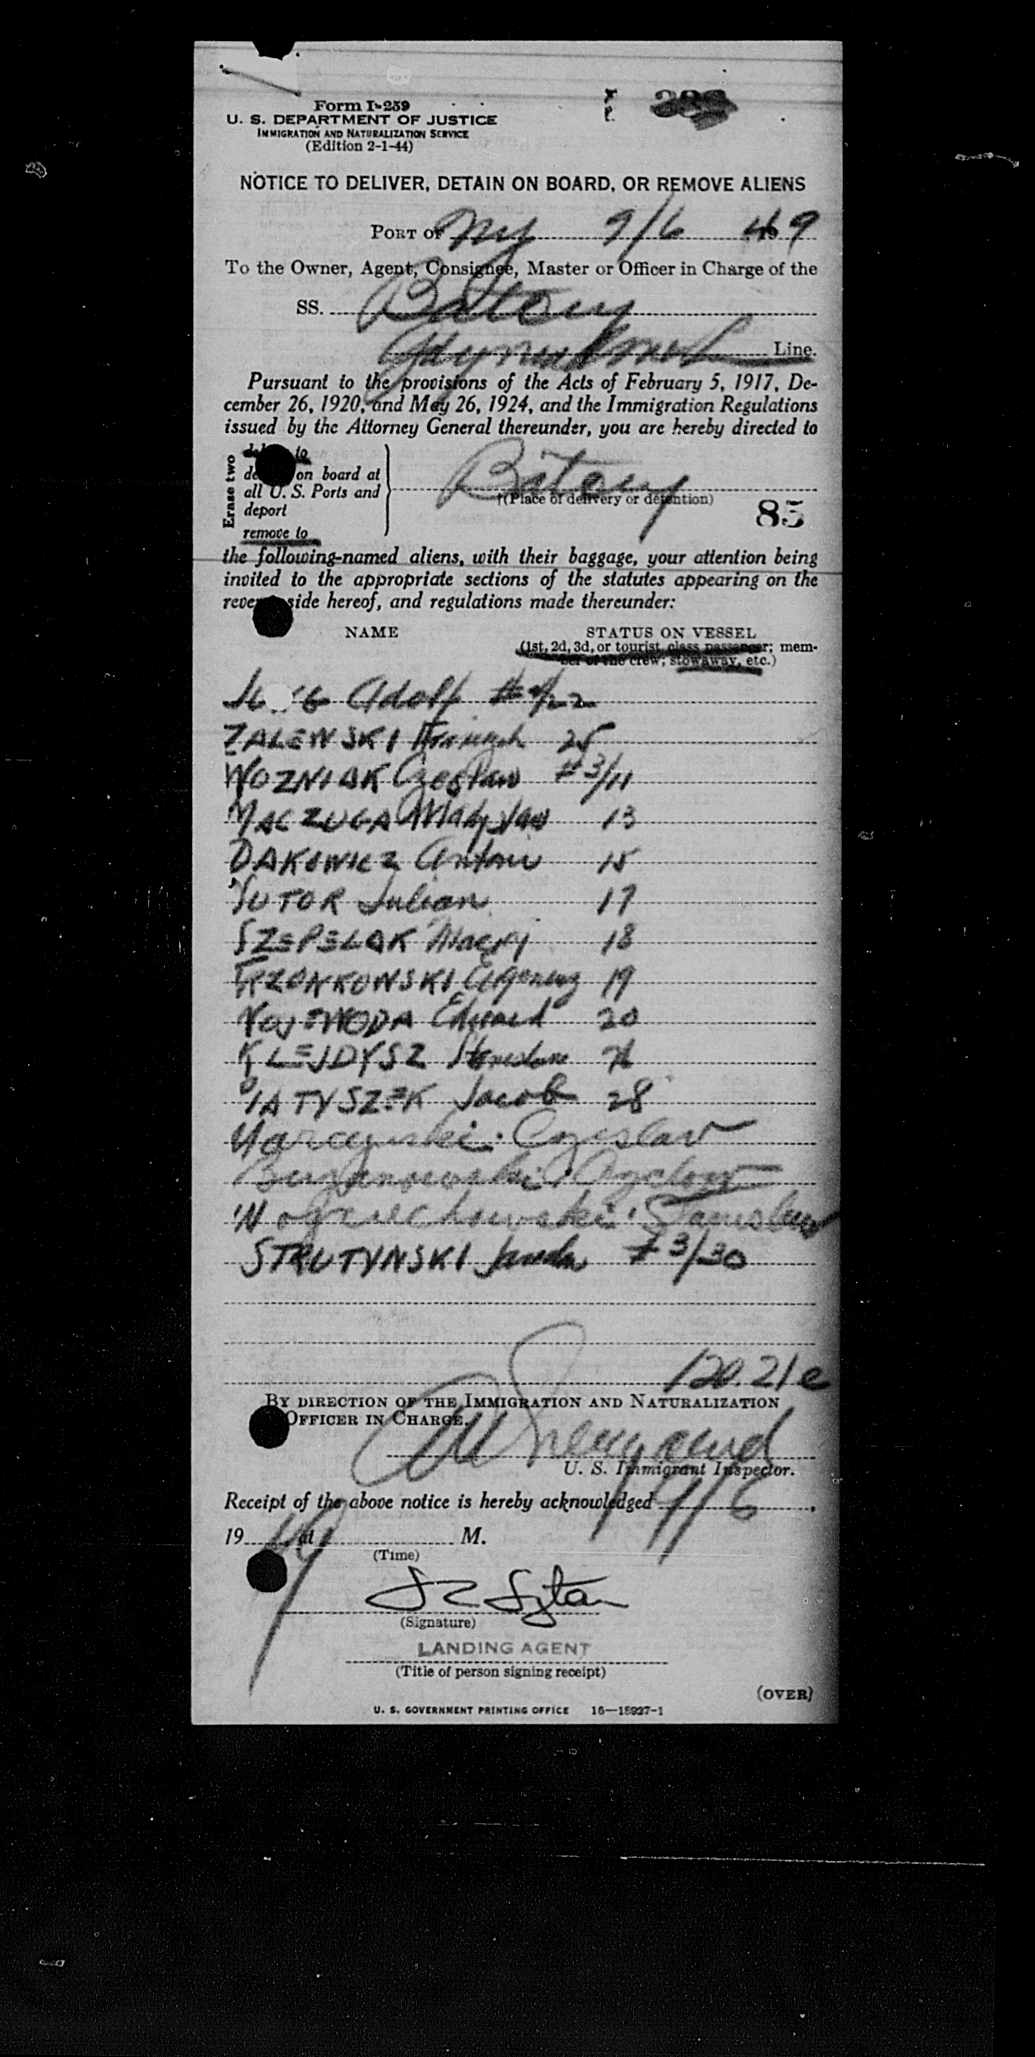 Form I-259
U. S. DEPARTMENT OF JUSTICE
IMMIGRATION AND NATURALIZATION SERVICE
(Edition 2-1-44)
NOTICE TO DELIVER, DETAIN ON BOARD, OR REMOVE ALIENS
PORT OF NY 9/6 49
To the Owner, Agent, Consignee, Master or Officer in Charge of the
SS. Batory
Gdynia Line.
Pursuant to the provisions of the Acts of February 5, 1917, De-
cember 26, 1920, and May 26, 1924, and the Immigration Regulations
issued by the Attorney General thereunder, you are hereby directed to
Erase two
to
on board at
all U. S. Ports and
deport
remove to
Batory
†(Place of delivery or detention)
85
the following-named aliens, with their baggage, your attention being
invited to the appropriate sections of the statutes appearing on the
side hereof, and regulations made thereunder:
NAME STATUS ON VESSEL
(1st, 2d, 3d, or tourist class passenger; mem-
ber of the crew; stowaway, etc.)
Adolf /22
ZALEWSKI Henryk 25
WOZNIAK Czeslaw #3/11
MACZUGA Wladyslaw 13
DAKOWICZ Antoni 15
TUTOR Julian 17
SZEPELAK Maciej 18
TRZONKOWSKI Eugeniusz 19
WOJEWODA Edward 20
KLEJDYSZ
MATYSZEK Jacob 28
Czeslaw
Stanislaw
STRUTYNSKI #3/30
120.21e
BY DIRECTION OF THE IMMIGRATION AND NATURALIZATION
OFFICER IN CHARGE.
U. S. Immigrant Inspector.
Receipt of the above notice is hereby acknowledged 9/6
1949 at M.
(Time)
(Signature)
LANDING AGENT
(Title of person signing receipt)
(OVER)
U. S. GOVERNMENT PRINTING OFFICE 16—18927-1